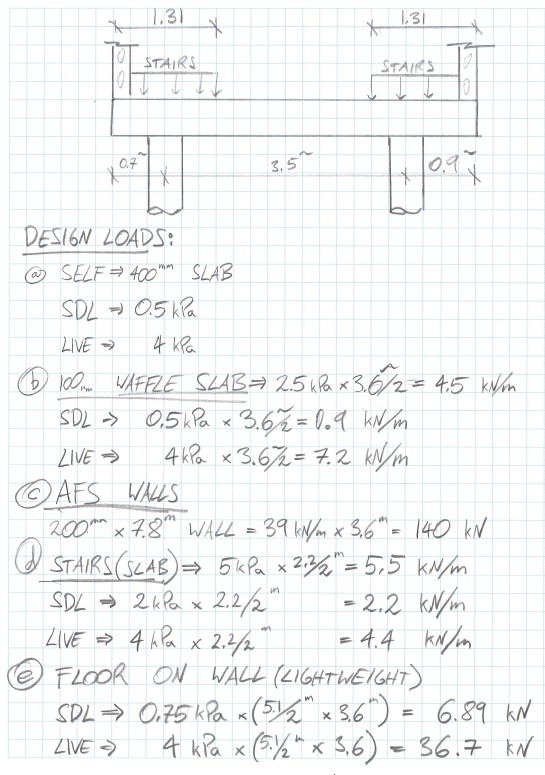 1.31 1.31
STAIRS STAIRS
0.7m 3.5m 0.9m
DESIGN LOADS:
(a) SELF ⇒ 400mm SLAB
SDL ⇒ 0.5 kPa
LIVE ⇒ 4 kPa
(b) 100mm WAFFLE SLAB ⇒ 2.5 kPa × 3.6m/2 = 4.5 kN/m
SDL ⇒ 0.5 kPa × 3.6m/2 = 0.9 kN/m
LIVE ⇒ 4 kPa × 3.6m/2 = 7.2 kN/m
(c) AFS WALLS
200mm × 7.8m WALL = 39 kN/m × 3.6m = 140 kN
(d) STAIRS (SLAB) ⇒ 5 kPa × 2.2/2m = 5.5 kN/m
SDL ⇒ 2 kPa × 2.2/2m = 2.2 kN/m
LIVE ⇒ 4 kPa × 2.2/2m = 4.4 kN/m
(e) FLOOR ON WALL (LIGHTWEIGHT)
SDL ⇒ 0.75 kPa × (5.1/2m × 3.6m) = 6.89 kN
LIVE ⇒ 4 kPa × (5.1/2m × 3.6) = 36.7 kN